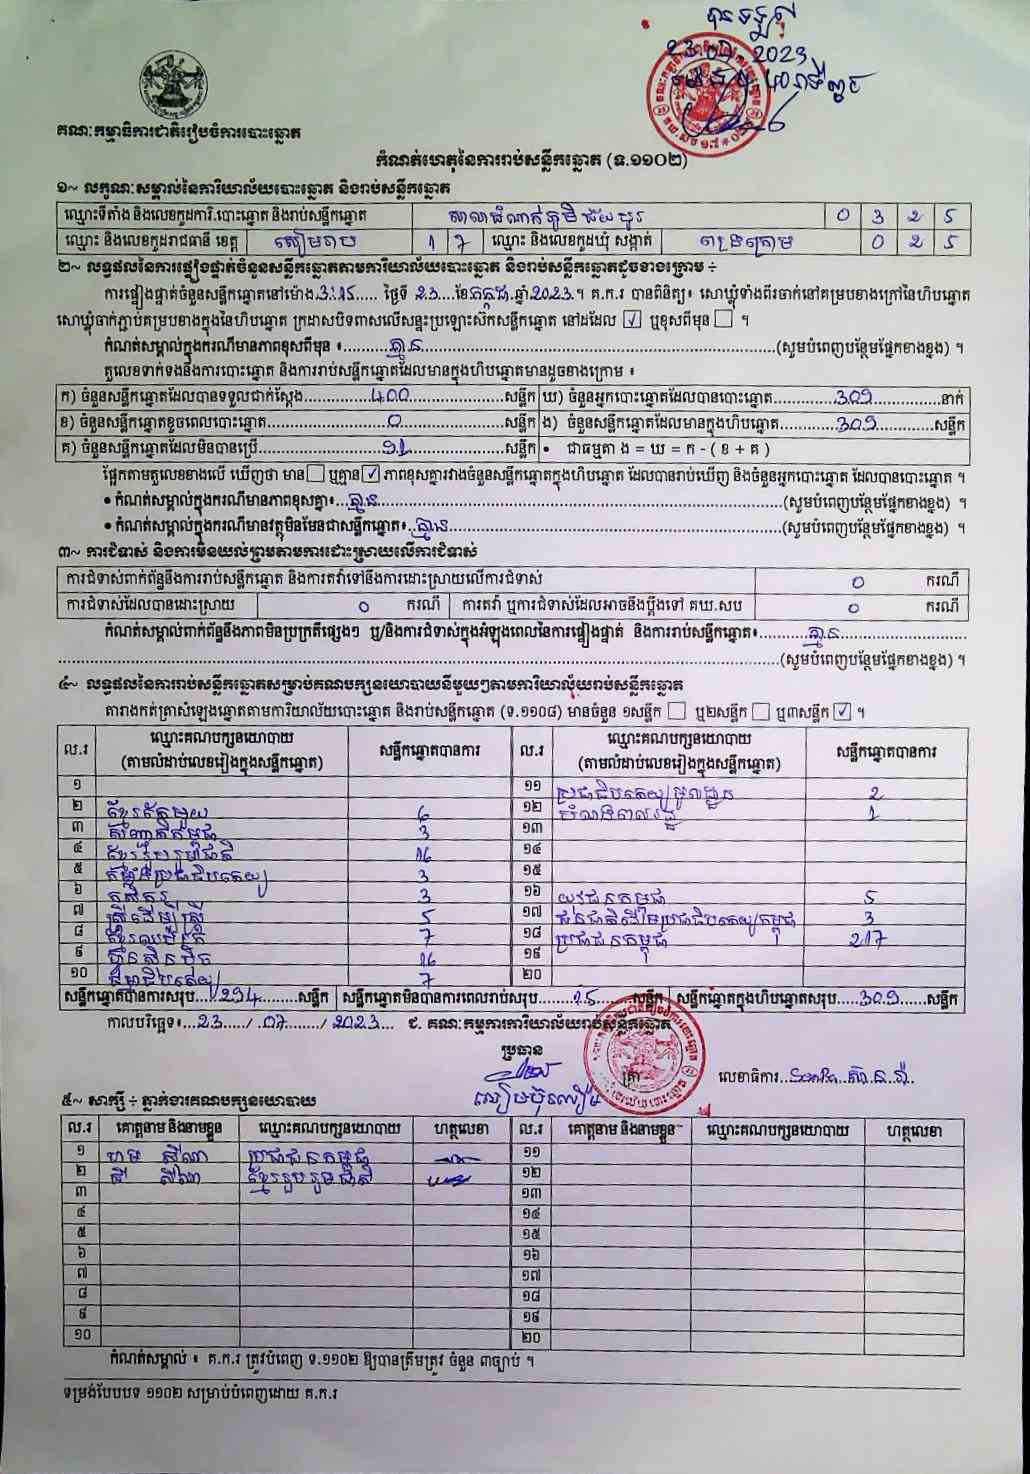 បានទទួល
23 07 2023
គណៈកម្មាធិការជាតិរៀបចំការបោះឆ្នោត
កំណត់ហេតុនៃការរាប់សន្លឹកឆ្នោត (ទ.១១០២)
១~ លក្ខណៈសម្គាល់នៃការិយាល័យបោះឆ្នោត និងរាប់សន្លឹកឆ្នោត
ឈ្មោះទីតាំង និងលេខកូដការិ.បោះឆ្នោត និងរាប់សន្លឹកឆ្នោត សាលាដំណាក់ភូមិ 0 3 2 5
ឈ្មោះ និងលេខកូដរាជធានី ខេត្ត សៀមរាប 1 7 ឈ្មោះ និងលេខកូដឃុំ សង្កាត់ 0 2 5
២~ លទ្ធផលនៃការផ្ទៀងផ្ទាត់ចំនួនសន្លឹកឆ្នោតតាមការិយាល័យបោះឆ្នោត និងរាប់សន្លឹកឆ្នោតដូចខាងក្រោម ÷
ការផ្ទៀងផ្ទាត់ចំនួនសន្លឹកឆ្នោតនៅម៉ោង 3:15 ថ្ងៃទី 23 ខែ កក្កដា ឆ្នាំ 2023 ។ គ.ក.រ បានពិនិត្យ៖ សោឃ្លុំទាំងពីរចាក់នៅគម្របខាងក្រៅនៃហិបឆ្នោត
សោឃ្លុំចាក់ភ្ជាប់គម្របខាងក្នុងនៃហិបឆ្នោត ក្រដាសបិទពាសលើសន្ទះប្រឡោះស៊កសន្លឹកឆ្នោត នៅដដែល ☑ ឬខុសពីមុន ☐ ។
កំណត់សម្គាល់ក្នុងករណីមានភាពខុសពីមុន ៖ គ្មាន (សូមបំពេញបន្ថែមផ្នែកខាងខ្នង) ។
តួលេខទាក់ទងនឹងការបោះឆ្នោត និងការរាប់សន្លឹកឆ្នោតដែលមានក្នុងហិបឆ្នោតមានដូចខាងក្រោម ៖
ក) ចំនួនសន្លឹកឆ្នោតដែលបានទទួលជាក់ស្តែង 400 សន្លឹក ឃ) ចំនួនអ្នកបោះឆ្នោតដែលបានបោះឆ្នោត 309 នាក់
ខ) ចំនួនសន្លឹកឆ្នោតខូចពេលបោះឆ្នោត 0 សន្លឹក ង) ចំនួនសន្លឹកឆ្នោតដែលមានក្នុងហិបឆ្នោត 309 សន្លឹក
គ) ចំនួនសន្លឹកឆ្នោតដែលមិនបានប្រើ 91 សន្លឹក • ជាធម្មតា ង = ឃ = ក - ( ខ + គ )
ផ្អែកតាមតួលេខខាងលើ ឃើញថា មាន ☐ ឬគ្មាន ☑ ភាពខុសគ្នារវាងចំនួនសន្លឹកឆ្នោតក្នុងហិបឆ្នោត ដែលបានរាប់ឃើញ និងចំនួនអ្នកបោះឆ្នោត ដែលបានបោះឆ្នោត ។
• កំណត់សម្គាល់ក្នុងករណីមានភាពខុសគ្នា៖ គ្មាន (សូមបំពេញបន្ថែមផ្នែកខាងខ្នង) ។
• កំណត់សម្គាល់ក្នុងករណីមានវត្ថុមិនមែនជាសន្លឹកឆ្នោត៖ គ្មាន (សូមបំពេញបន្ថែមផ្នែកខាងខ្នង) ។
៣~ ការជំទាស់ និងការមិនយល់ព្រមតាមការដោះស្រាយលើការជំទាស់
ការជំទាស់ពាក់ព័ន្ធនឹងការរាប់សន្លឹកឆ្នោត និងការតវ៉ាទៅនឹងការដោះស្រាយលើការជំទាស់ 0 ករណី
ការជំទាស់ដែលបានដោះស្រាយ 0 ករណី ការតវ៉ា ឬការជំទាស់ដែលអាចនឹងប្តឹងទៅ គឃ.សប 0 ករណី
កំណត់សម្គាល់ពាក់ព័ន្ធនឹងភាពមិនប្រក្រតីផ្សេងៗ ឬ/និងការជំទាស់ក្នុងអំឡុងពេលនៃការផ្ទៀងផ្ទាត់ និងការរាប់សន្លឹកឆ្នោត៖ គ្មាន
(សូមបំពេញបន្ថែមផ្នែកខាងខ្នង) ។
៤~ លទ្ធផលនៃការរាប់សន្លឹកឆ្នោតសម្រាប់គណបក្សនយោបាយនីមួយៗតាមការិយាល័យរាប់សន្លឹកឆ្នោត
តារាងកត់ត្រាសំឡេងឆ្នោតតាមការិយាល័យបោះឆ្នោត និងរាប់សន្លឹកឆ្នោត (ទ.១១០៨) មានចំនួន ១សន្លឹក ☐ ឬ២សន្លឹក ☐ ឬ៣សន្លឹក ☑ ។
ល.រ ឈ្មោះគណបក្សនយោបាយ សន្លឹកឆ្នោតបានការ ល.រ ឈ្មោះគណបក្សនយោបាយ សន្លឹកឆ្នោតបានការ
(តាមលំដាប់លេខរៀងក្នុងសន្លឹកឆ្នោត) (តាមលំដាប់លេខរៀងក្នុងសន្លឹកឆ្នោត)
១ ១១ ប្រជាធិបតេយ្យមូលដ្ឋាន 2
២ ខ្មែរតែមួយ 6 ១២ 1
៣ 3 ១៣
៤ ខ្មែររួបរួមជាតិ 16 ១៤
៥ កម្លាំងប្រជាធិបតេយ្យ 3 ១៥
៦ កសិករ 3 ១៦ យុវជនកម្ពុជា 5
៧ ស្ត្រីដើម្បីស្ត្រី 5 ១៧ ជនជាតិដើមប្រជាធិបតេយ្យកម្ពុជា 3
៨ 7 ១៨ ប្រជាជនកម្ពុជា 217
៩ ហ៊្វុនស៊ិនប៉ិច 16 ១៩
១០ ធម្មាធិបតេយ្យ 7 ២០
សន្លឹកឆ្នោតបានការសរុប 294 សន្លឹក សន្លឹកឆ្នោតមិនបានការពេលរាប់សរុប 15 សន្លឹក សន្លឹកឆ្នោតក្នុងហិបឆ្នោតសរុប 309 សន្លឹក
កាលបរិច្ឆេទ៖ 23 / 07 / 2023 ជ. គណៈកម្មការការិយាល័យរាប់សន្លឹកឆ្នោត
ប្រធាន
ត្រា លេខាធិការ
៥~ សាក្សី ÷ ភ្នាក់ងារគណបក្សនយោបាយ
ល.រ គោត្តនាម និងនាមខ្លួន ឈ្មោះគណបក្សនយោបាយ ហត្ថលេខា ល.រ គោត្តនាម និងនាមខ្លួន ឈ្មោះគណបក្សនយោបាយ ហត្ថលេខា
១ ហម ស៊ីណា ប្រជាជនកម្ពុជា ១១
២ ខ្មែររួបរួមជាតិ ១២
៣ ១៣
៤ ១៤
៥ ១៥
៦ ១៦
៧ ១៧
៨ ១៨
៩ ១៩
១០ ២០
កំណត់សម្គាល់ ៖ គ.ក.រ ត្រូវបំពេញ ទ.១១០២ ឱ្យបានត្រឹមត្រូវ ចំនួន ៣ច្បាប់ ។
ទម្រង់បែបបទ ១១០២ សម្រាប់បំពេញដោយ គ.ក.រ